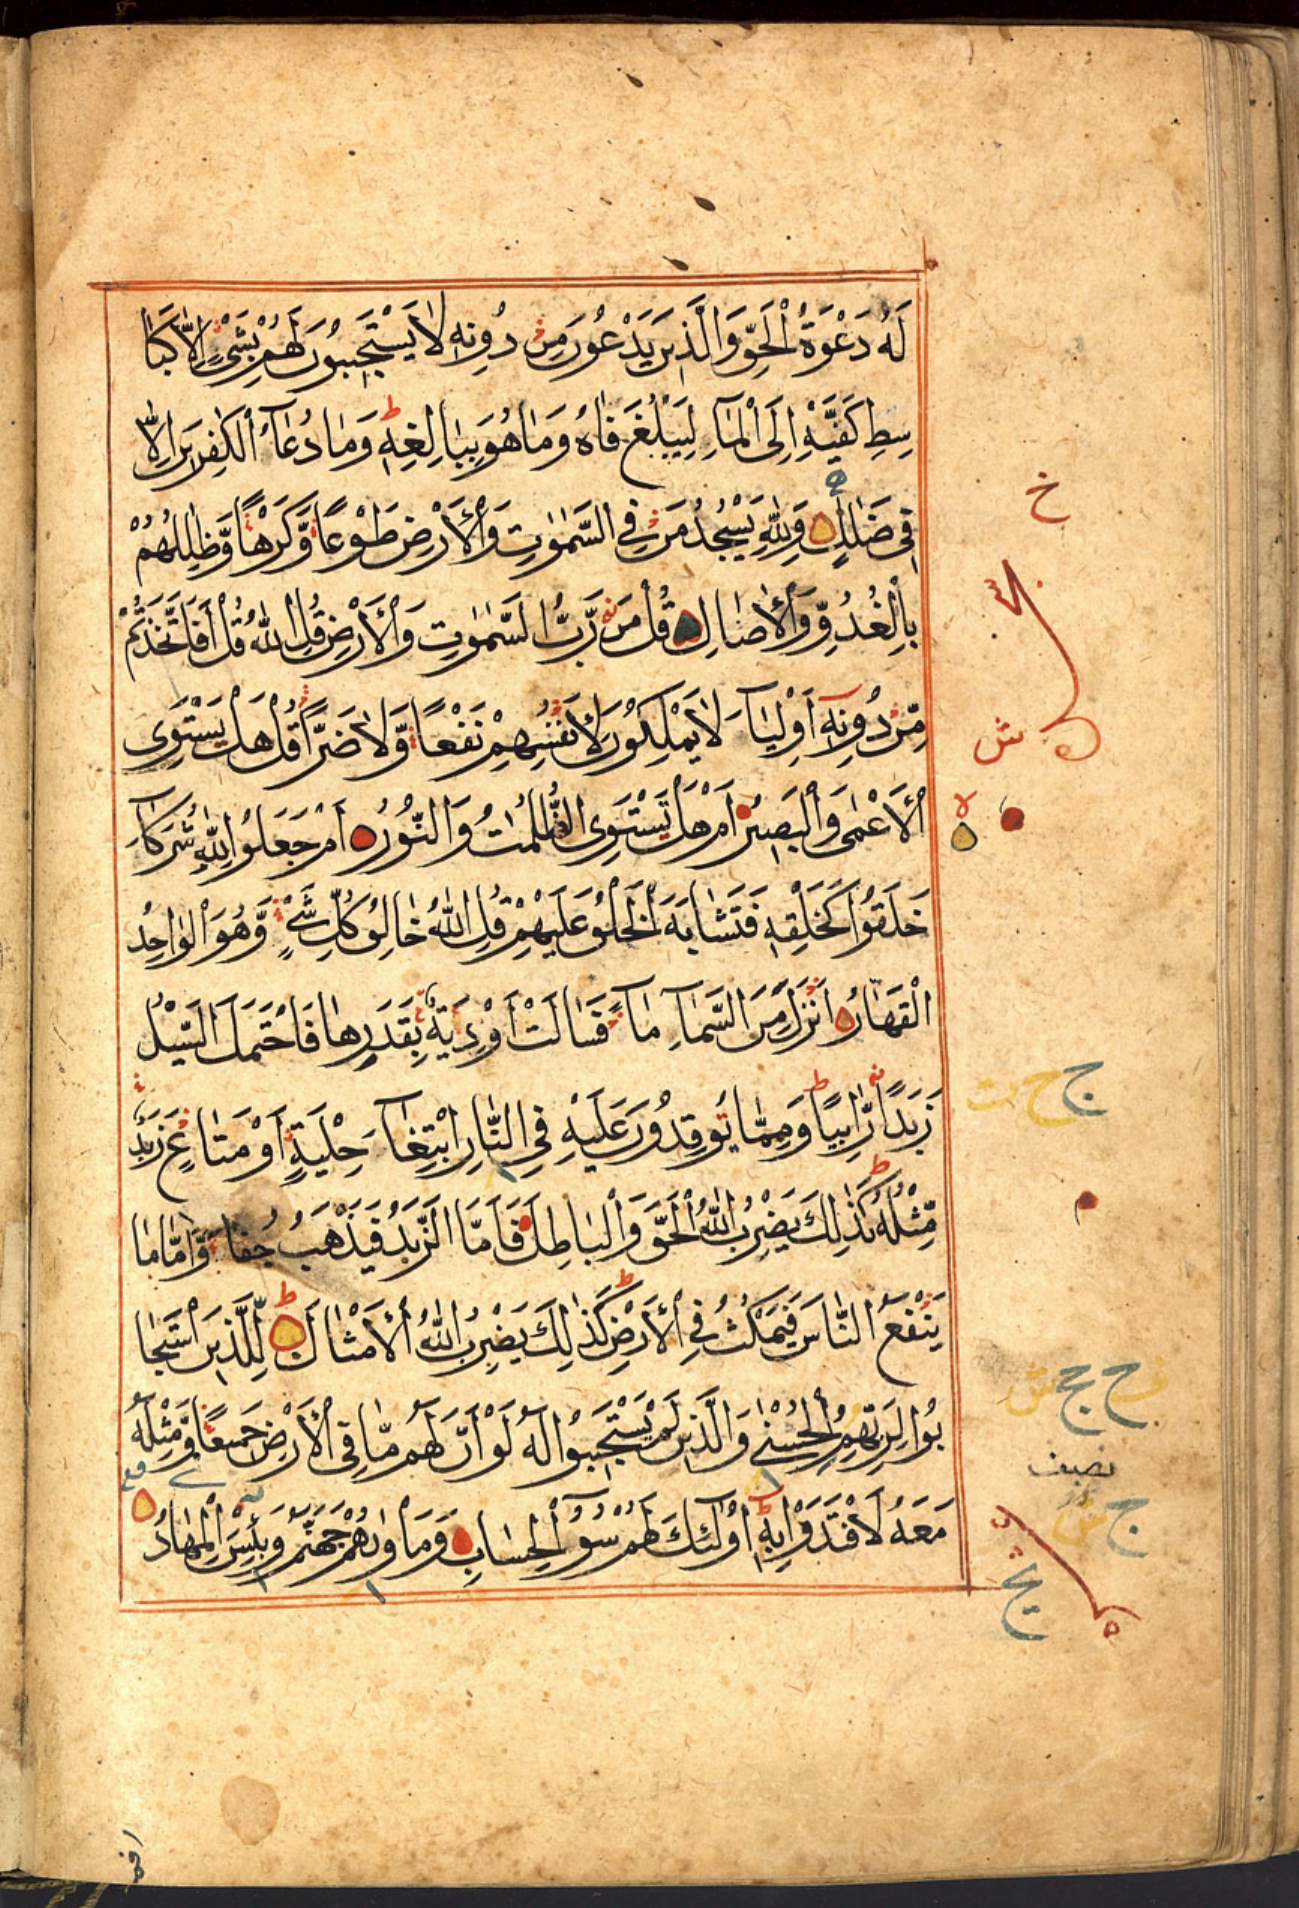 لَهُ دَعْوَةُ الْحَقِّ وَالَّذِينَ يَدْعُونَ مِنْ دُونِهِ لَا يَسْتَجِيبُونَ لَهُمْ بِشَيْءٍ إِلَّا كَبَا
سِطِ كَفَّيْهِ إِلَى الْمَاءِ لِيَبْلُغَ فَاهُ وَمَا هُوَ بِبَالِغِهِ ط وَمَا دُعَاءُ الْكَٰفِرِينَ إِلَّا
فِي ضَلَٰلٍ وَلِلَّهِ يَسْجُدُ مَنْ فِي السَّمَٰوَٰتِ وَالْأَرْضِ طَوْعًا وَّكَرْهًا وَّظِلَٰلُهُمْ
بِالْغُدُوِّ وَالْأَصَالِ قُلْ مَنْ رَّبُّ السَّمَٰوَٰتِ وَالْأَرْضِ قُلِ اللَّهُ قُلْ أَفَاتَّخَذْتُمْ
مِّنْ دُونِهِ أَوْلِيَاءَ لَا يَمْلِكُونَ لِأَنْفُسِهِمْ نَفْعًا وَّلَا ضَرًّا قُلْ هَلْ يَسْتَوِى
الْأَعْمَىٰ وَالْبَصِيرُ أَمْ هَلْ تَسْتَوِى الظُّلُمَٰتُ وَالنُّورُ أَمْ جَعَلُوا لِلَّهِ شُرَكَاءَ
خَلَقُوا كَخَلْقِهِ فَتَشَٰابَهَ الْخَلْقُ عَلَيْهِمْ قُلِ اللَّهُ خَالِقُ كُلِّ شَيْءٍ وَّهُوَ الْوَاحِدُ
الْقَهَّارُ أَنْزَلَ مِنَ السَّمَاءِ مَاءً فَسَالَتْ أَوْدِيَةٌ بِقَدَرِهَا فَاحْتَمَلَ السَّيْلُ
زَبَدًا رَّابِيًا ط وَمِمَّا يُوقِدُونَ عَلَيْهِ فِي النَّارِ ابْتِغَاءَ حِلْيَةٍ أَوْ مَتَاعٍ زَبَدٌ
مِّثْلُهُ ط كَذَٰلِكَ يَضْرِبُ اللَّهُ الْحَقَّ وَالْبَاطِلَ فَأَمَّا الزَّبَدُ فَيَذْهَبُ جُفَاءً وَّأَمَّا مَا
يَنْفَعُ النَّاسَ فَيَمْكُثُ فِي الْأَرْضِ ط كَذَٰلِكَ يَضْرِبُ اللَّهُ الْأَمْثَالَ ط لِلَّذِينَ اسْتَجَا
بُوا لِرَبِّهِمُ الْحُسْنَىٰ وَالَّذِينَ لَمْ يَسْتَجِيبُوا لَهُ لَوْ أَنَّ لَهُمْ مَّا فِي الْأَرْضِ جَمِيعًا وَّمِثْلَهُ
مَعَهُ لَافْتَدَوْا بِهِ ط أُولَٰئِكَ لَهُمْ سُوءُ الْحِسَابِ وَمَأْوَىٰهُمْ جَهَنَّمُ وَبِئْسَ الْمِهَادُ
خ
ش
ج ح ت
ج ش
نصف